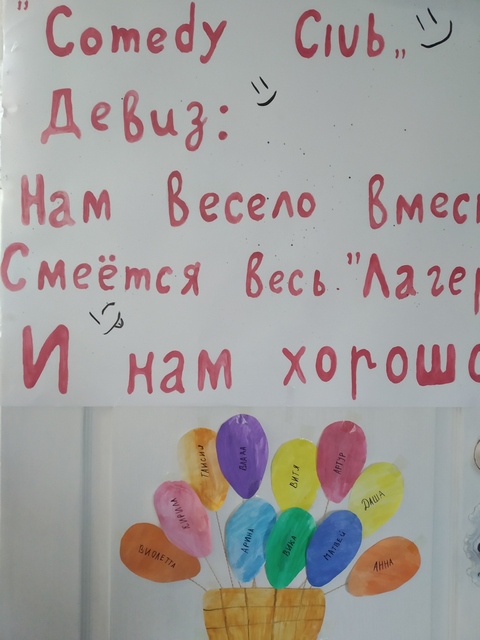 "Comedy Club"
Девиз:
Нам весело вмес
Смеётся весь "Лагер
И нам хорошо
ТАИСИЯ
ВАНЯ
ВИТЯ
АРТУР
КИРИЛЛ
ДАША
АРИНА
ВИКА
МАТВЕЙ
ВИОЛЕТТА
АННА